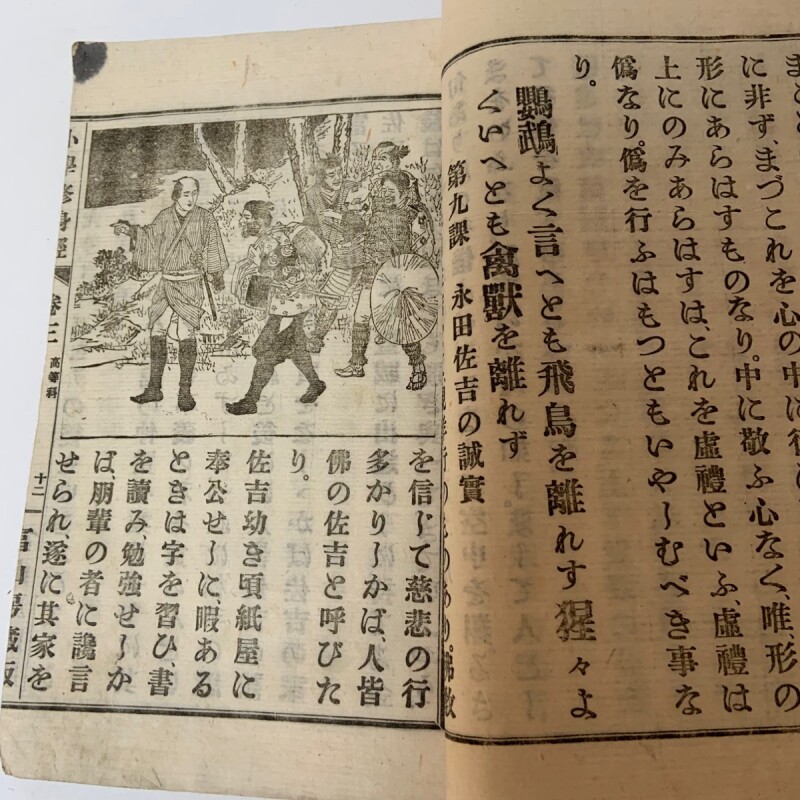 に非ず、まづこれを心の中に行
形にあらはすものなり。中に敬ふ心なく、唯、形の
上にのみあらはすは、これを虚禮といふ、虚禮は
僞なり。僞を行ふはもつともいやしむべき事な
り。
鸚鵡よく言へとも飛鳥を離れす猩々よ
くいへとも禽獸を離れず
第九課 永田佐吉の誠實
を信じて慈悲の行
多かりしかば、人皆
佛の佐吉と呼びた
り。
佐吉幼き頃紙屋に
奉公せしに、暇ある
ときは字を習ひ、書
を讀み、勉強せしか
ば、朋輩の者に讒言
せられ、遂に其家を
小學修身經 卷三 高等科 十二